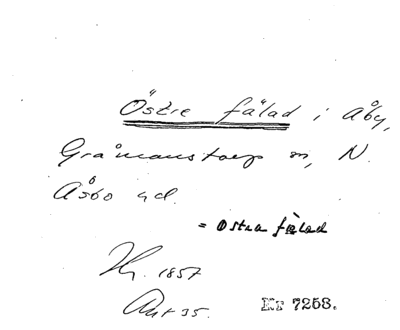 Östre fälad i Åby,
Gråmanstorps sn, N.
Åsbo hd.
= Östra fälad
Hy. 1857
Akt 35. Kr 7258.